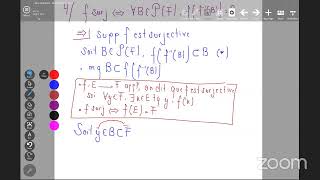 4/ f surj ⇔ ∀B∈P(F), f(f⁻¹(B)) =
⇒| Supp f est surjective
Soit B∈P(F), f(f⁻¹(B)) ⊂ B (*)
. mq B ⊂ f(f⁻¹(B))
• f: E → F app, on dit que f est surjective
ssi ∀y∈F, ∃x∈E tq y = f(x)
• f surj ⇔ f(E) = F
Soit y∈B⊂F
zoom